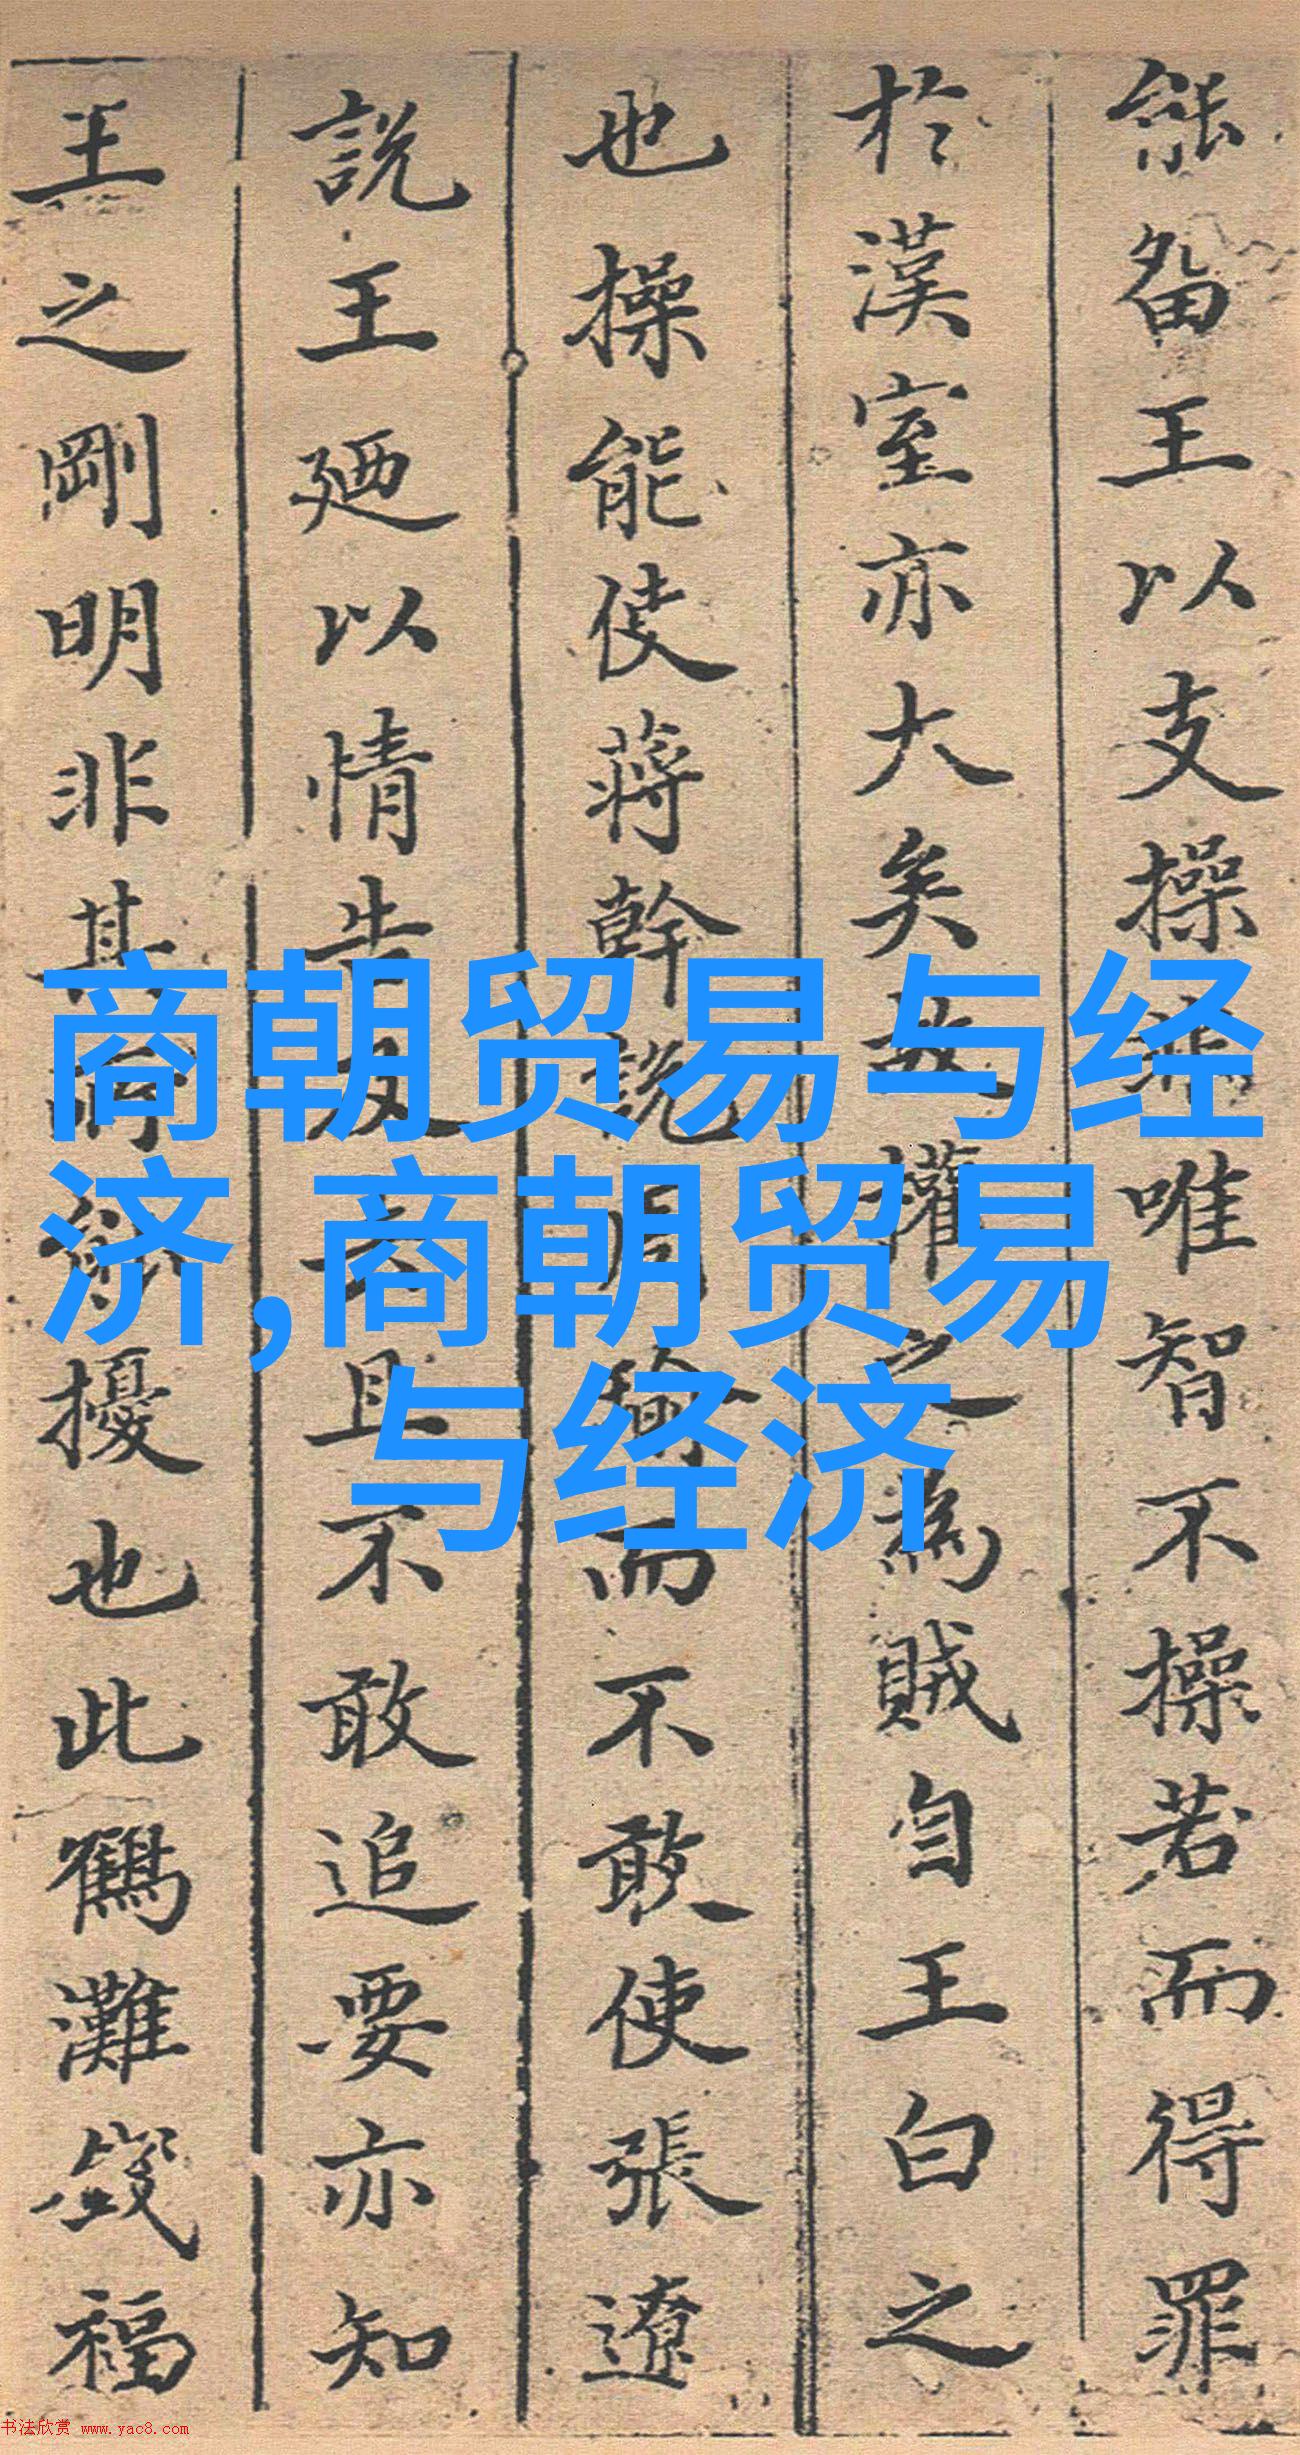 能留王以支操非唯智不操若而得罪
於漢室亦大矣故權之為賊自王白之
也操能使蔣幹說周瑜而不敢使張遼
說王廼以情告且不敢追要亦知
王之剛明非其所能擾也此鶴灘錢福
商朝贸易与经
济,商朝贸易
与经济
书法欣赏 www.yac8.com